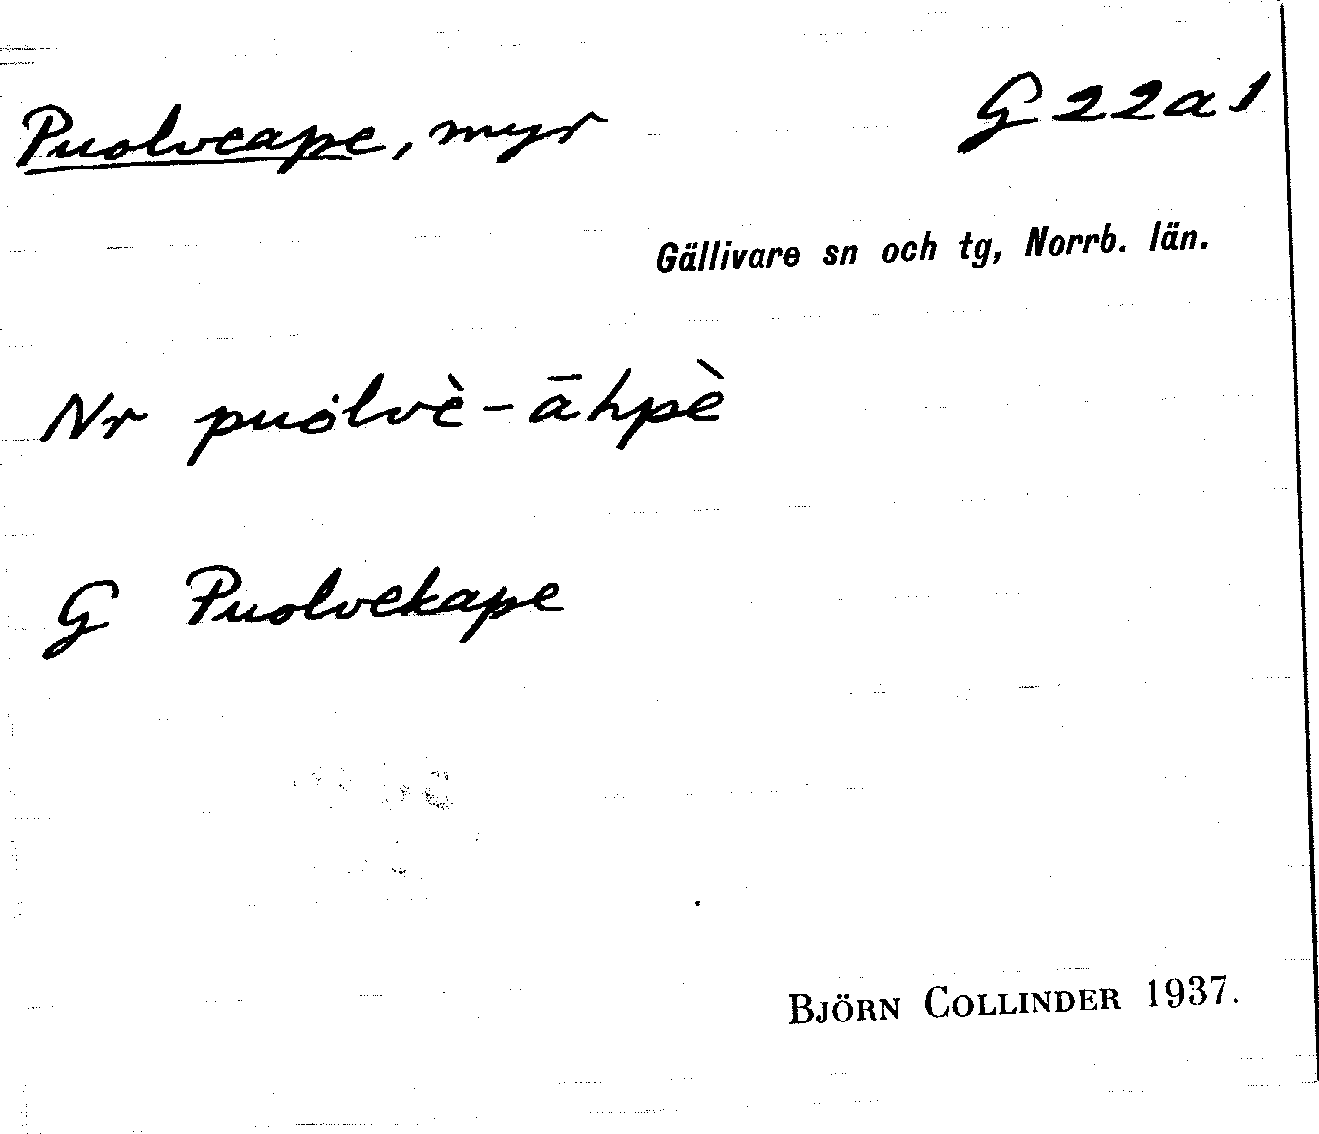 Puolveape, myr G 22 a 1
Gällivare sn och tg, Norrb. län.
Nr puȯlvè-āhpè
G Puolvekape
BJÖRN COLLINDER 1937.